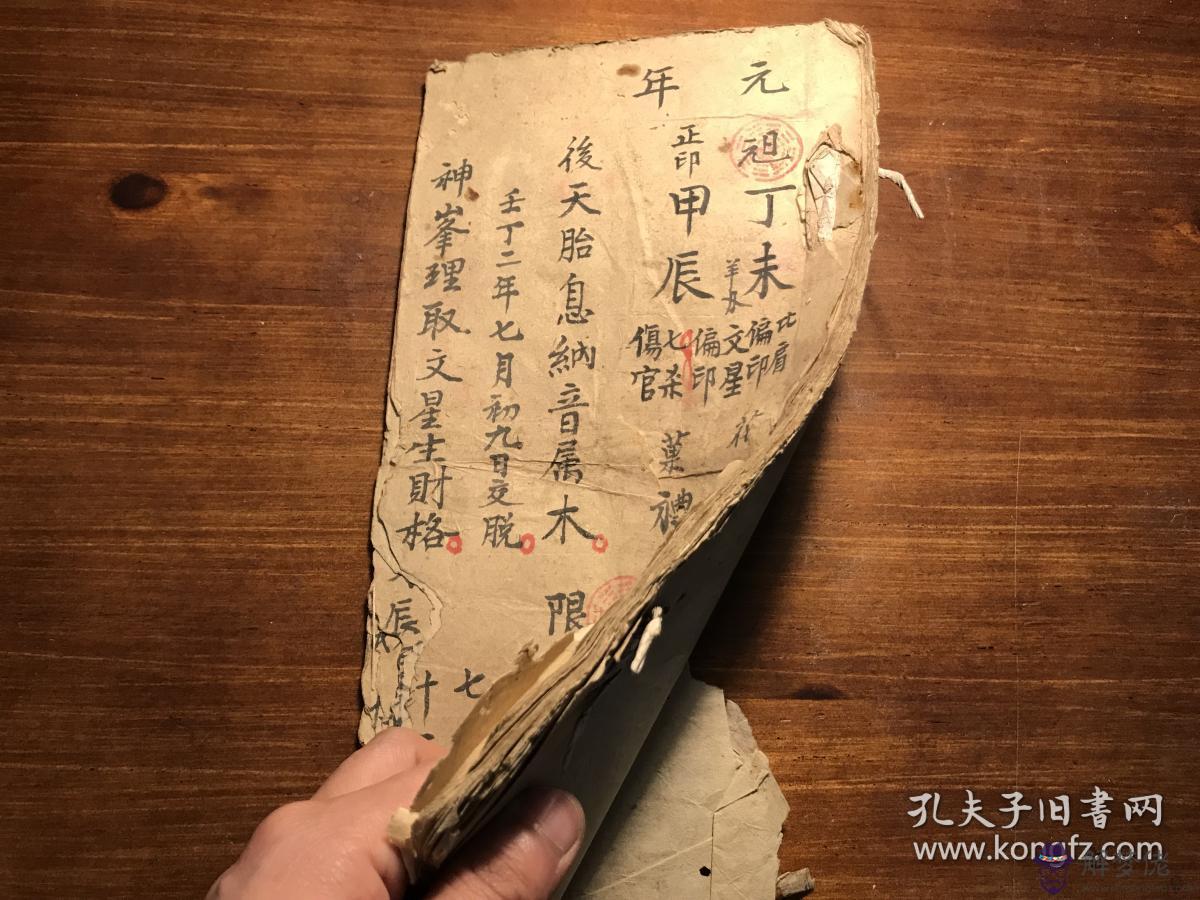 元
祖丁未
比肩
偏印
文星
偏印
年
正印甲辰
七杀
傷官
後天胎息納音属木
限
壬丁二年七月初九日交脱
七
神峯理取文星生財格
辰
十
孔夫子旧書网
www.kongfz.com
解梦佬